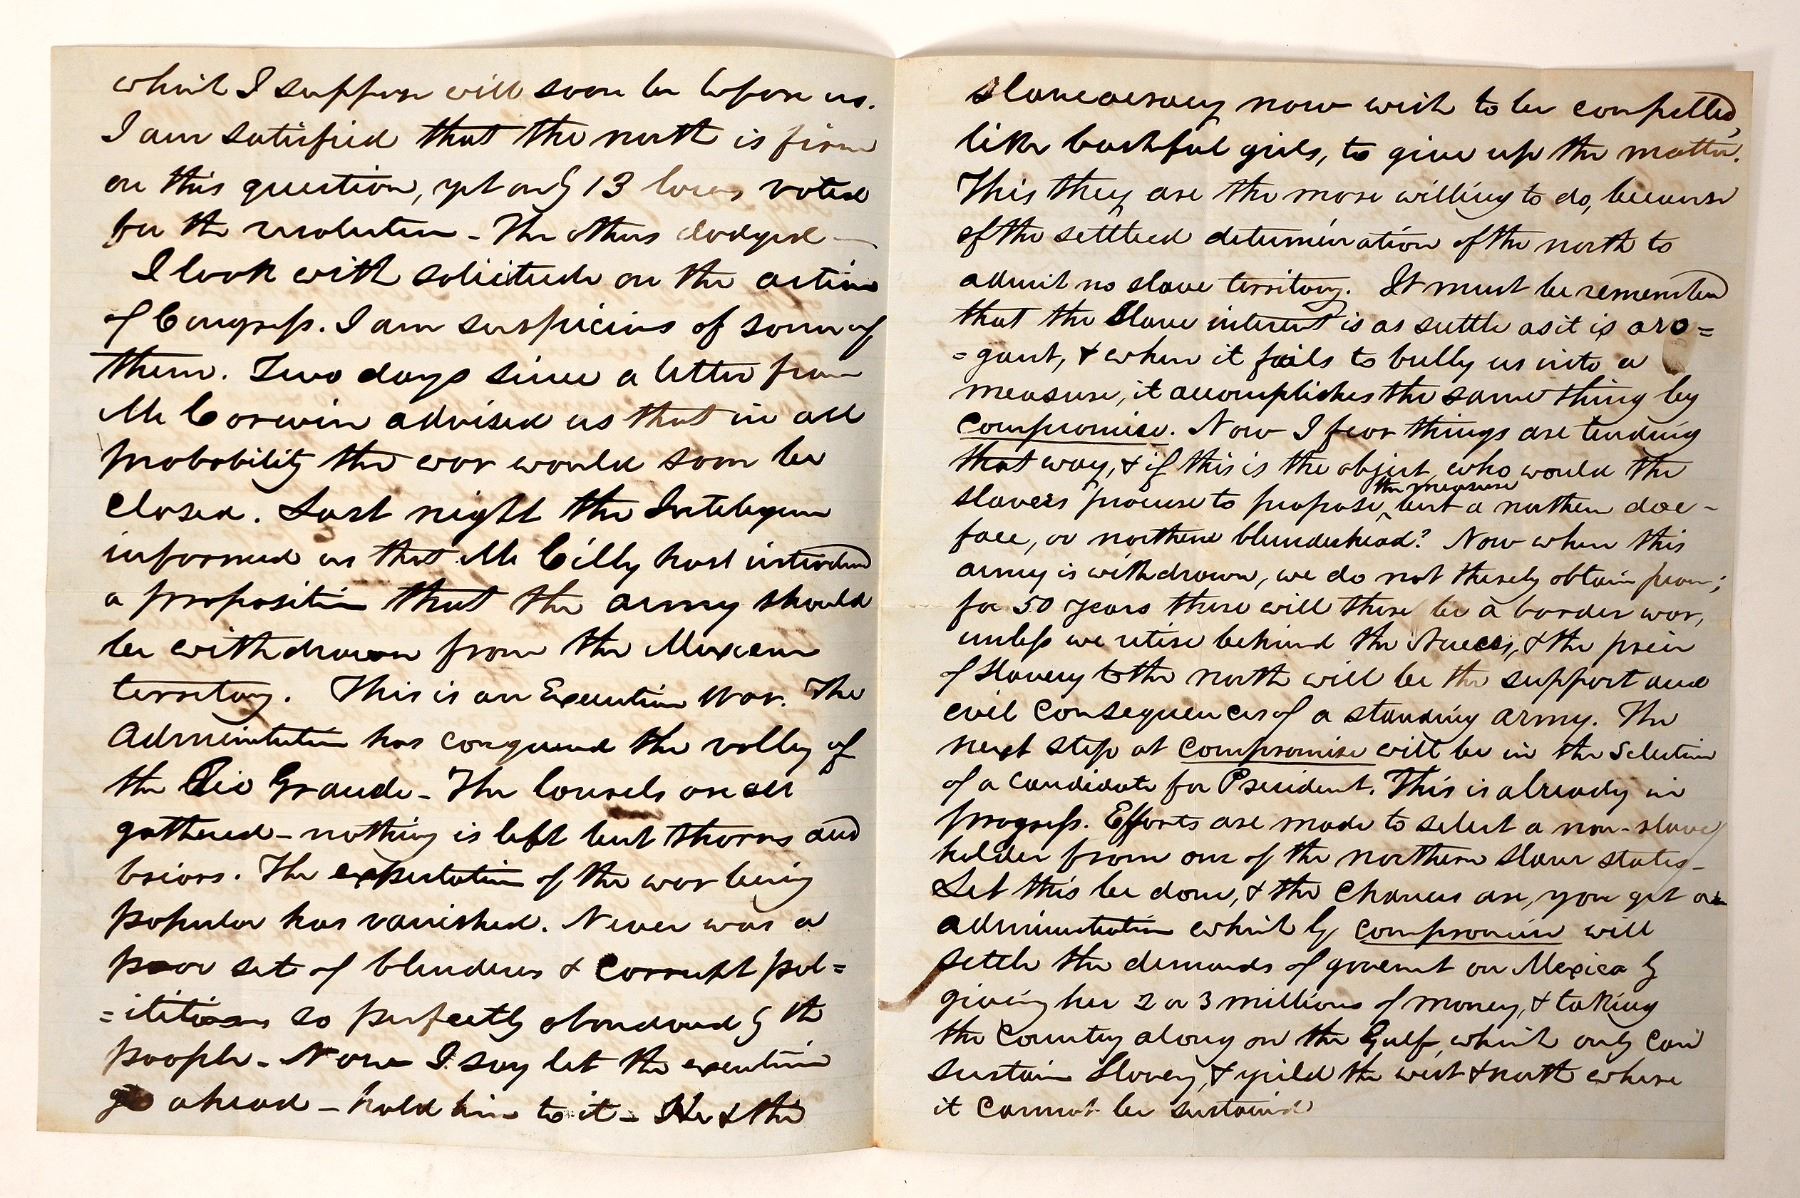 which I suppose will soon be before us.
I am satisfied that the north is firm
on this question, yet only 13 locos voted
for the resolution - The others dodged -
I look with solicitude on the action
of Congress. I am suspicious of some of
them. Two days since a letter from
Mr Corwin advised us that in all
probability the war would soon be
closed. Last night the
informed us that Mr Cilly had introduced
a proposition that the army should
be withdrawn from the Mexican
territory. This is an Executive War. The
Administration has conquered the valley of
the Rio Grande - The laurels are all
gathered - nothing is left but thorns and
briars. The expectation of the war being
popular has vanished. Never was a
poor set of blunderers & corrupt pol=
=iticians so perfectly abandoned by the
people - Now I say let the executive
go ahead - hold him to it - He & the
slaveocracy now wish to be compelled,
like bashful girls, to give up the matter.
This they are the more willing to do, because
of the settled determination of the north to
admit no slave territory. It must be remembered
that the Slave interest is as suttle as it is aro=
=gant, & when it fails to bully us into a
measure, it accomplishes the same thing by
compromise. Now I fear things are tending
that way, & if this is the object, who would the
slavers procure to propose the measure but a northern doe-
face, or northern blunderhead? Now when this
army is withdrawn, we do not thereby obtain peace;
for 50 years there will there be a border war,
unless we retire behind the Nueces, & the price
of Slavery to the north will be the support and
evil consequences of a standing army. The
next step at compromise will be in the selection
of a candidate for President. This is already in
progress. Efforts are made to select a non-slave
holder from one of the northern slave states -
Let this be done, & the chances are, you get an
administration which by compromise will
settle the demands of governt on Mexico by
giving her 2 or 3 millions of money, & taking
the country along on the Gulf, which only can
sustain Slavery, & yield the west & north where
it cannot be sustained